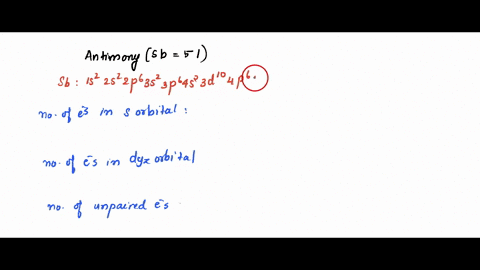 Antimony (Sb = 51)
Sb : 1s² 2s² 2p⁶ 3s² 3p⁶ 4s² 3d¹⁰ 4p⁶
no. of e⁻s in s orbital :
no. of e⁻s in dyx orbital
no. of unpaired e⁻s